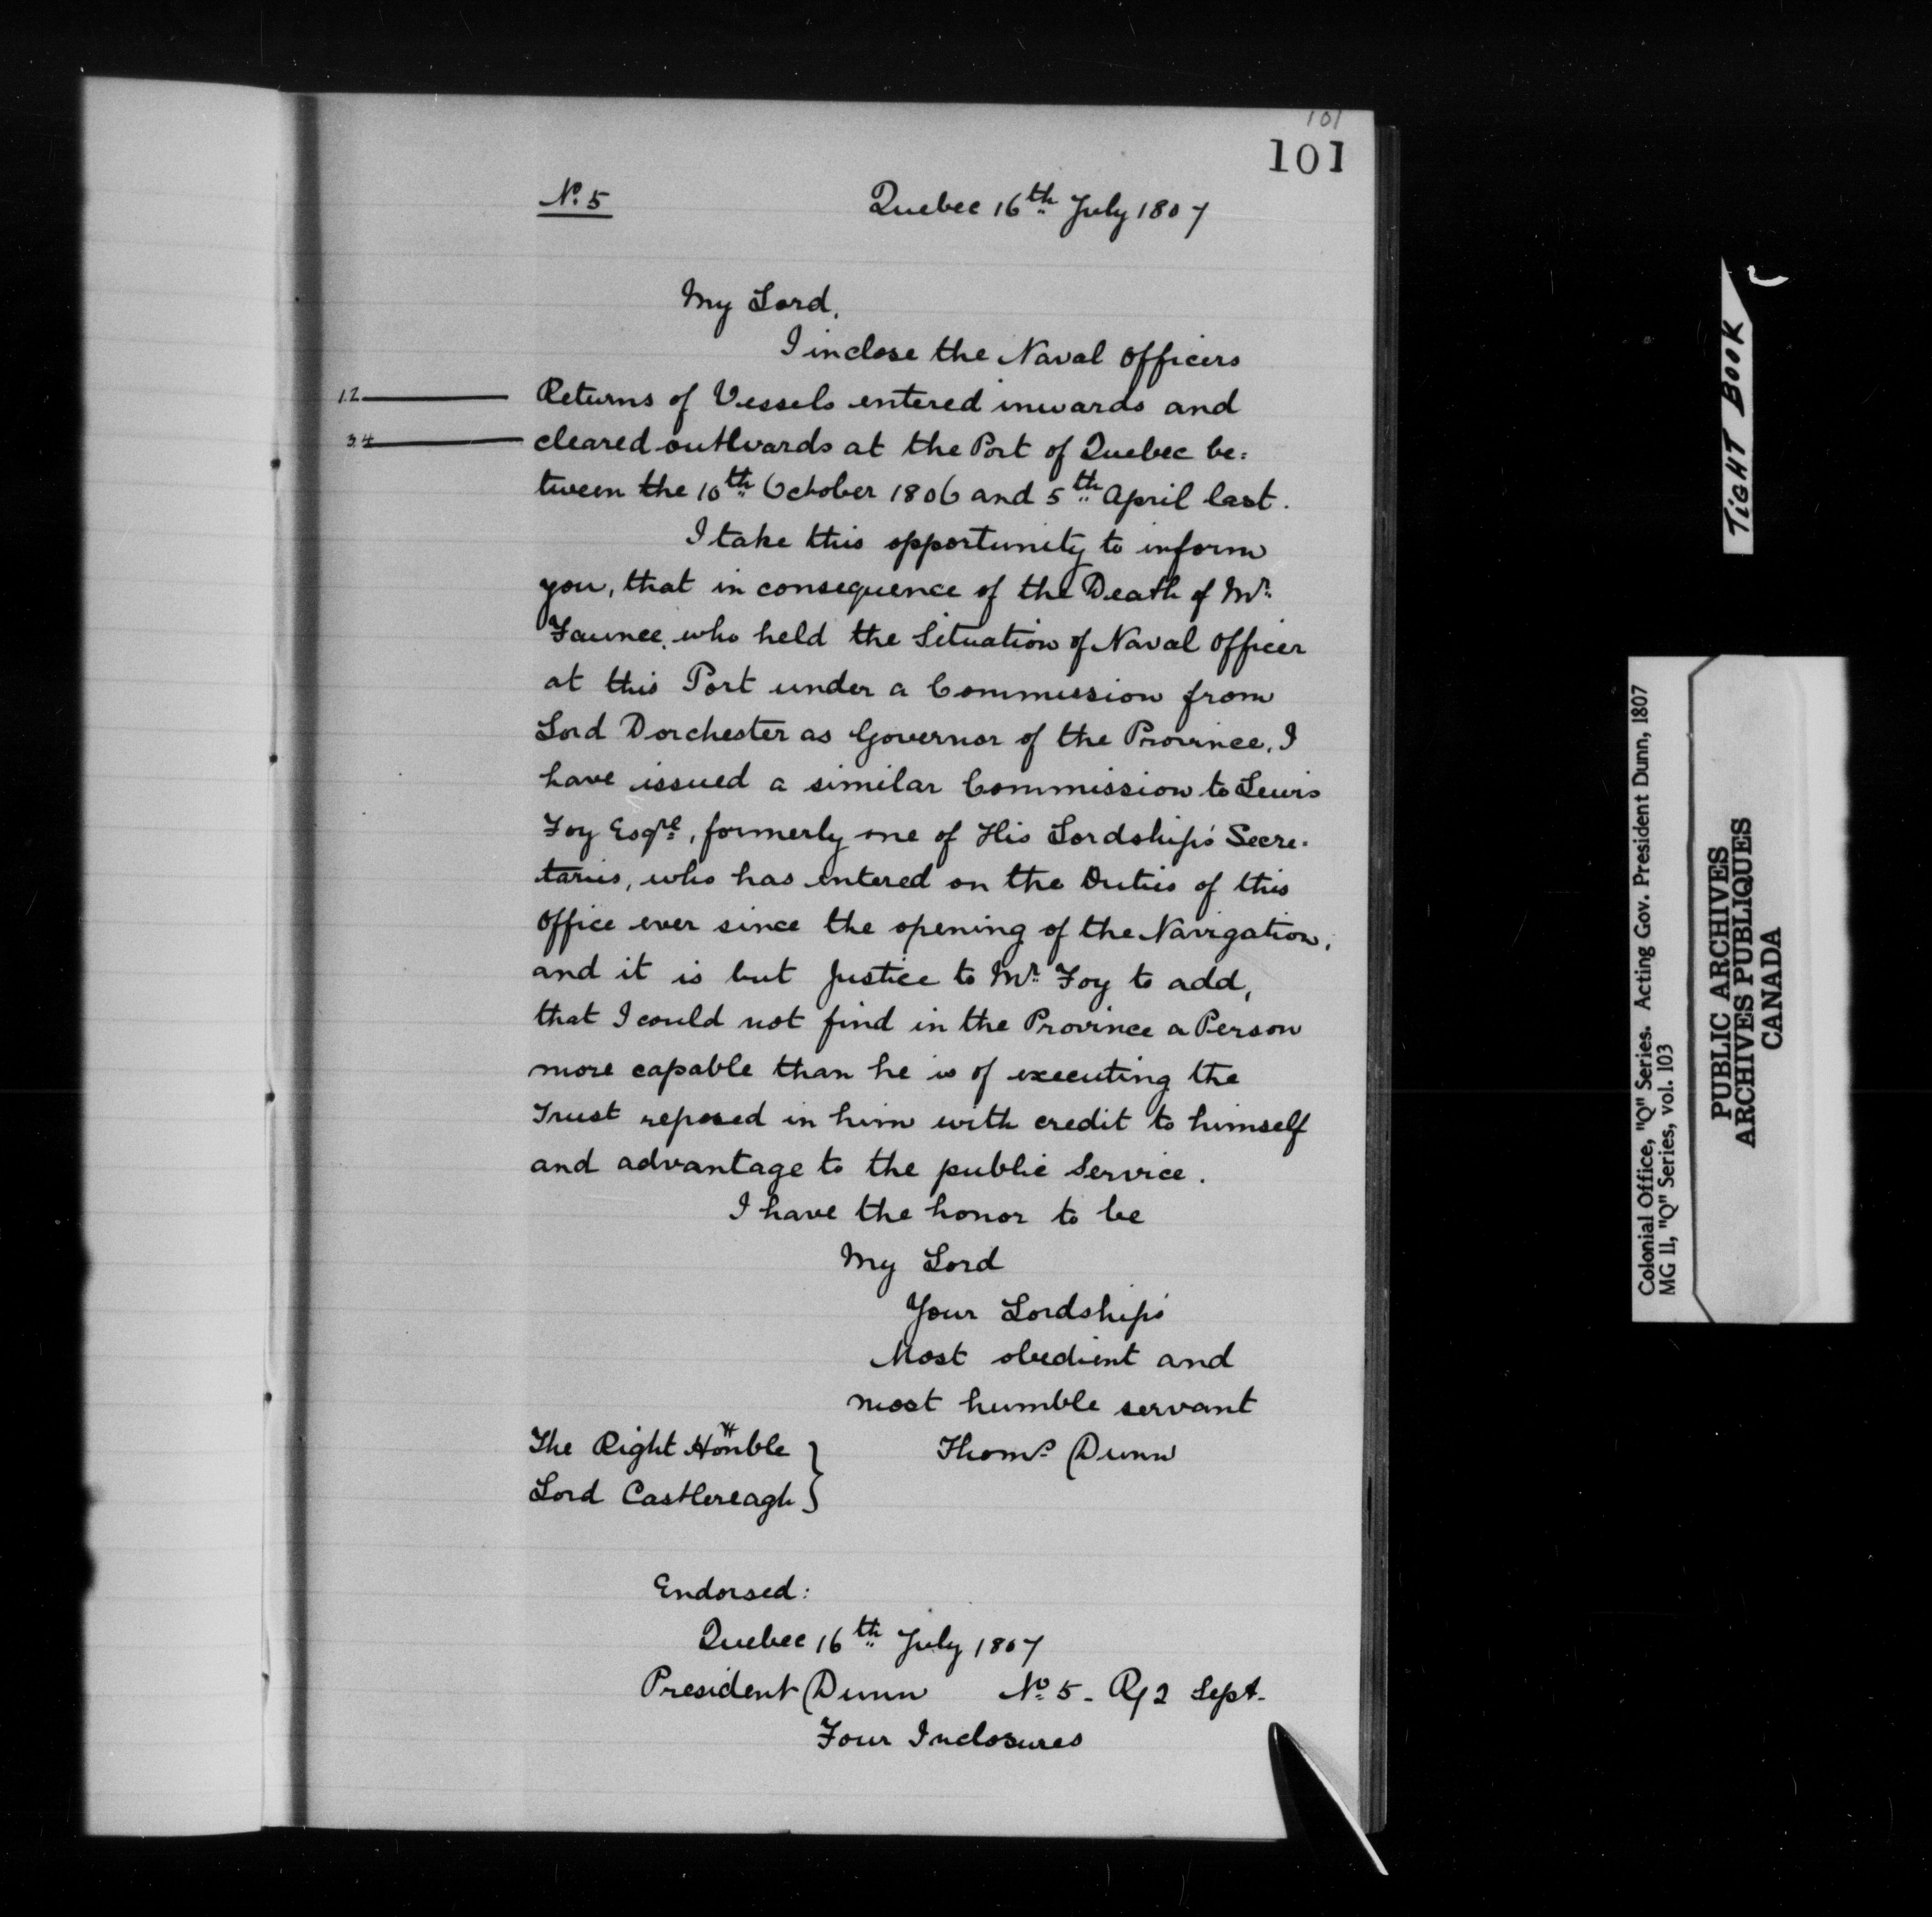 101
101
No. 5
Quebec 16th July 1807
My Lord,
I inclose the Naval Officers
1.2 Returns of Vessels entered inwards and
3.4 cleared outwards at the Port of Quebec be:
tween the 10th October 1806 and 5th April last.
I take this opportunity to inform
you, that in consequence of the Death of Mr.
Faunce, who held the Situation of Naval Officer
at this Port under a Commission from
Lord Dorchester as Governor of the Province, I
have issued a similar Commission to Lewis
Foy Esqre, formerly one of His Lordship's Secre-
taries, who has entered on the Duties of this
Office ever since the opening of the Navigation,
and it is but Justice to Mr. Foy to add,
that I could not find in the Province a Person
more capable than he is of executing the
Trust reposed in him with credit to himself
and advantage to the public Service.
I have the honor to be
My Lord
Your Lordship's
Most obedient and
most humble servant
Thoms. Dunn
The Right Honble
Lord Castlereagh
Endorsed:
Quebec 16th July 1807
President Dunn No. 5 - R/ 2 Sept.
Four Inclosures
TIGHT BOOK
Colonial Office, "Q" Series. Acting Gov. President Dunn, 1807
MG 11, "Q" Series, vol. 103
PUBLIC ARCHIVES
ARCHIVES PUBLIQUES
CANADA